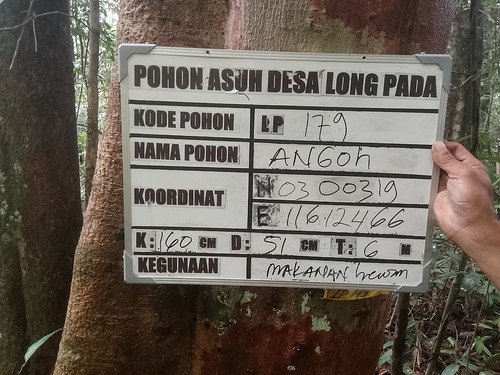 POHON ASUH DESA LONG PADA
KODE POHON LP 179
NAMA POHON ANGOh
KOORDINAT N 03 00319
E 116.12466
K: 160 CM D: 51 CM T: 6 M
KEGUNAAN MAKANAN hewan